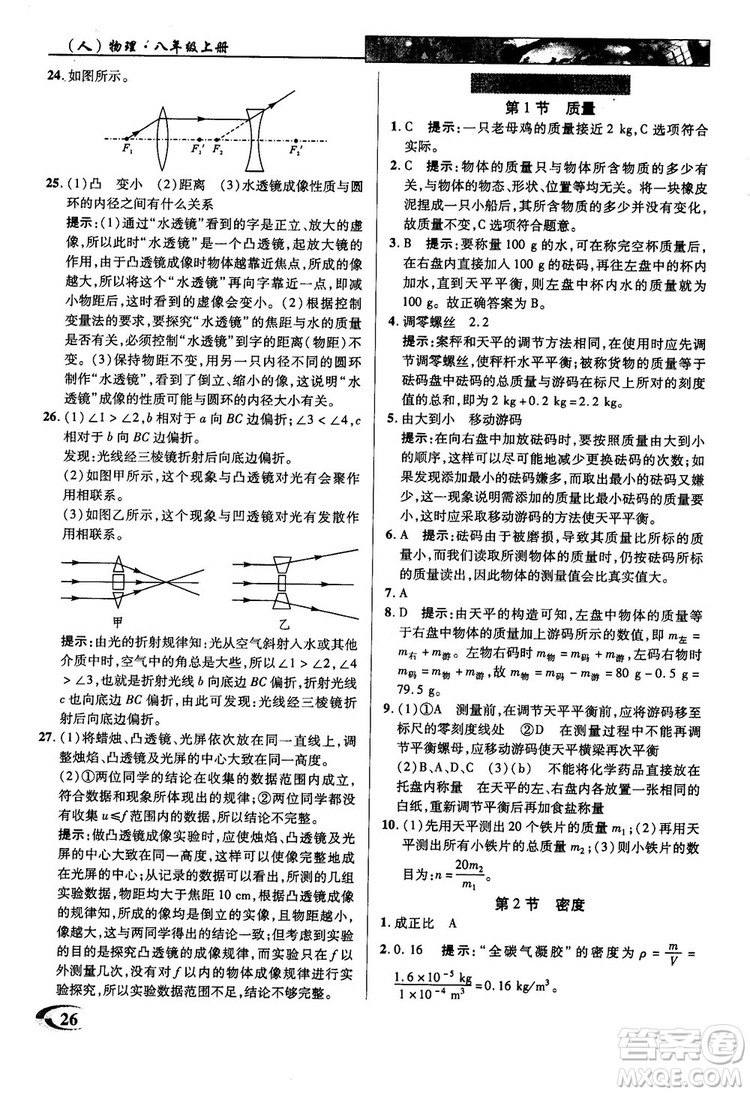 (人)物理·八年级上册
24.如图所示。
F₁ F₁′ F₂ F₂′
25.(1)凸 变小 (2)距离 (3)水透镜成像性质与圆
环的内径之间有什么关系
提示:(1)通过“水透镜”看到的字是正立、放大的虚
像,所以此时“水透镜”是一个凸透镜,起放大镜的
作用,由于凸透镜成像时物体越靠近焦点,像
越大,所以将这个“水透镜”再向字靠近一些,即减
小物距后,看到的虚像会变小。(2)根据控制
变量法的要求,要探究“水透镜”的焦距与水的质量
是否有关,必须控制“水透镜”到圆环的距离(物距)不
变。(3)保持物距不变,用内径不同的圆环制作
“水透镜”,成像的大小会变化,这说明“水
透镜”成像的性质与圆环的内径大小有关。
26.(1)∠1>∠2,b相对于a向BC边偏折;∠3<∠4,c
相对于b向BC边偏折。
发现:光线经三棱镜折射后向底边偏折。
(2)如图甲所示,这个现象与凸透镜对光有会聚作
用相联系。
(3)如图乙所示,这个现象与凹透镜对光有发散作
用相联系。
甲 乙
提示:由光的折射规律知:光从空气斜射入水或其他
介质中时,空气中的角总是大些,所以∠1>∠2,∠3<∠4。
也就是折射光线b向底边BC偏折,折射光线c
也向底边BC偏折。可以发现:光线经三棱镜折
射后向底边偏折。
27.(1)将蜡烛、凸透镜、光屏依次放在同一直线上,调
整烛焰、凸透镜、光屏的中心大致在同一高度。
(2)①两位同学的结论在收集的数据范围内成立,
符合数据和现象所体现出的规律;②两位同学没有
收集u≤f范围内的数据,所以结论不完整。
提示:做凸透镜成像实验时,应使烛焰、凸透镜及光
屏的中心大致在同一高度,以便使像完整地成在
光屏的中心。从记录的数据来看,在所测的几组
实验数据内,物距均大于焦距10 cm,根据凸透镜成像
的规律知,所成的像均是倒立的实像,且物距越小,
像就越大。两位同学的结论都符合所收集的实验数
据所体现的凸透镜成像的规律,但从实验的探究
以外测量,没有对在f以内的成像规律进行实验
探究,所以收集的数据范围不足,结论也不完整。
26
第1节 质量
1.C 提示:一只老母鸡的质量接近2 kg,C选项符合
实际。
2.C 提示:物体的质量只与物体所含物质的多少有
关,与物体的物态、形状、位置等均无关。将一块橡皮
泥捏成一个小船后,其中所含物质的多少并没有变化,
故质量不变。C选项符合题意。
3.B 提示:要称量100 g的水,可在称完空杯质量后,
在右盘内直接加入100 g的砝码,再往左盘中的杯内
加水,直到天平平衡,此时左盘中杯内水的质量为
100 g。故正确答案为B。
4.调零螺丝 2.2
提示:案秤和天平的调节方法相同,在使用时应先调节
调零螺丝,使秤杆水平平衡;被称货物的质量等于
砝码盘中砝码的总质量与游码在标尺上的刻度
值的总和,即2 kg+0.2 kg=2.2 kg。
5.由大到小 移动游码
提示:在向右盘中加放砝码时,要按照由大到小
的顺序,这样可以更少地减少加减砝码的次数;如
果发现添加最小的砝码嫌多,而减去最小的砝码又嫌
少时,应采用移动游码的方法使天平平衡。
6.A 提示:砝码由于被磨损,导致其质量比标注质量
小,而我们读取所测物体的质量时,仍按砝码标注的
质量读出,因此物体的测量值会比真实值偏大。
7.A
8.D 提示:由天平的构造可知,左盘中物体的质量
等于右盘中砝码的质量加上游码所示的数值,即m左=
m右+m游,m物=m码+m游,若左盘放砝码,右盘放物体,则m码=
m物+m游,所以m物=m码-m游=80 g-0.5 g=
79.5 g。
9.(1)①A 测量前,在调节天平平衡前,应将游码移至
标尺的零刻度线处 ②D 在测量过程中,又移动
平衡螺母,应移动游码使天平横梁再次平衡
(2)B、A、D、C (3)(b) 不能将化学药品直接用
托盘内称量 在天平的左、右盘内各放置一张相同的
白纸,重新调节天平平衡后再加食盐称量
10.(1)先用天平测出20个铁片的质量m₁;(2)再用天
平测出所有铁片的总质量m₂;(3)则铁片的总数
目为:n=20m₂/m₁。
第2节 密度
1.成正比 A
2.0.16 提示:“全碳气凝胶”的密度为ρ=m/V=
1.6×10⁻⁵ kg/1×10⁻⁴ m³=0.16 kg/m³。
答案圈